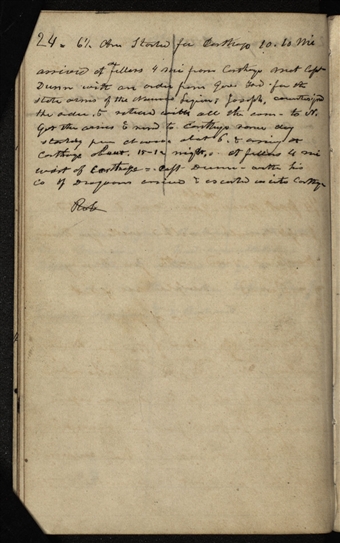 24. 6½ Am Started for Carthage 10. to 10 Mi
arrived at fellers 4 mi from Carthage met Capt
Dunn with an order from Gov. Ford for the
State arms of the Nauvoo Legion, Joseph, countersigned
the order, & returned with all the com - to N.
Got the arms & went to Carthage same day
started from Nauvoo about 6. & arriv at
Carthage about 12 night, - at fellers 4 mi
west of Carthage - Capt Dunn with his
co of Dragoons arrived & escorted into Carthage
Rob